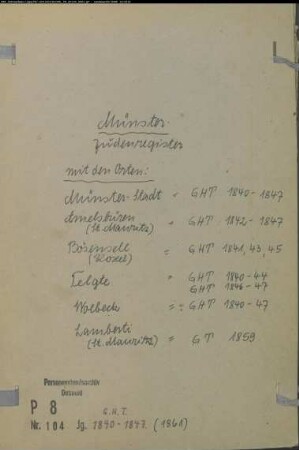 Münster.
Judenregister
mit den Orten:
Münster-Stadt = GHT 1840-1847
Amelsbüren = GHT 1842-1847
(St. Mauritz)
Bösensell = GHT 1841, 43, 45
(Roxel)
Telgte = GHT 1840-44
GHT 1846-47
Wolbeck = GHT 1840-47
Lamberti = GT 1859
(St. Mauritz)
Personenstandsarchiv
P 8
G.H.T.
Nr. 104 Jg. 1840-1847. (1861)